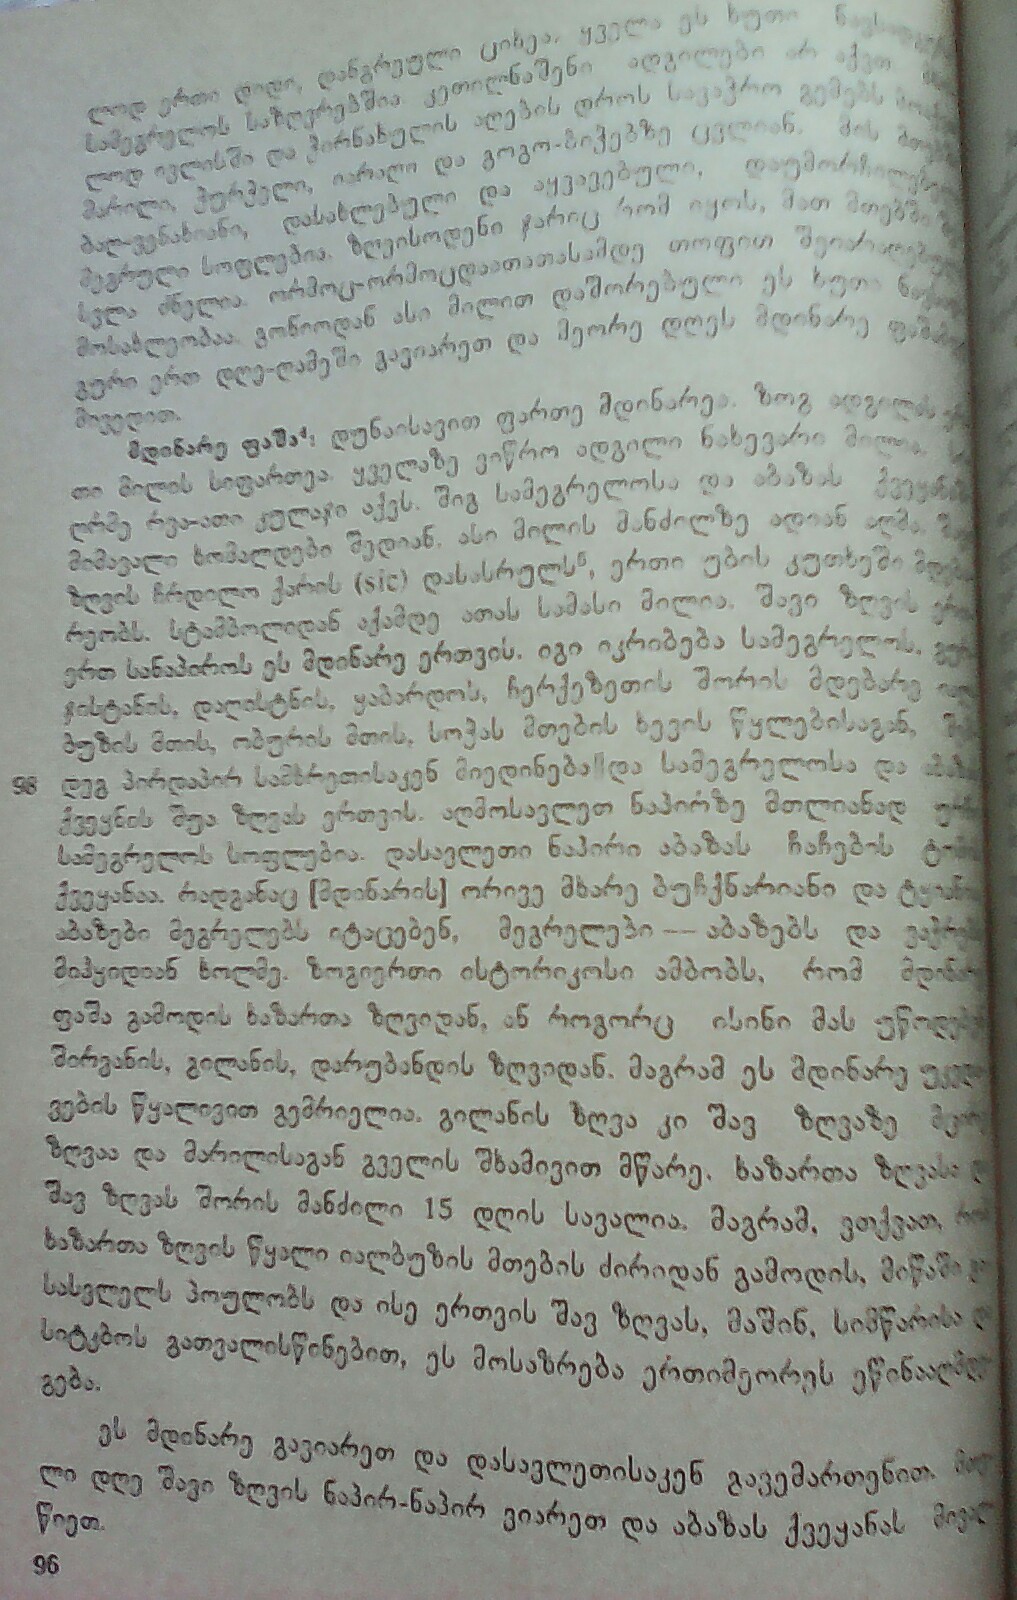 ლოდ ერთი დიდი, დანგრეული ციხეა. ყველა ეს ხუთი
სამეგრელოს საზღვრებშია. კეთილნაშენი ადგილები არ აქვთ.
ლოდ ივლისში და ჭირნახულის აღების დროს სავაჭრო გემებს
მარილი, ჭურჭელი, იარაღი და გოგო-ბიჭებზე ცვლიან. მის
ბაღ-ვენახიანი, დასახლებული და აყვავებული,
მეგრული სოფლებია. ზღვისოდენი ჯარიც რომ იყოს, მათ მთებში
სვლა ძნელია. ორმოც-ორმოცდაათათასამდე თოფით
მოსახლეობაა. გონიოდან ასი მილით დაშორებული ეს ხუთი
გური ერთ დღე-ღამეში გავიარეთ და მეორე დღეს მდინარე
მივედით.
მდინარე ფაშა⁴: დუნაისავით ფართე მდინარეა. ზოგ ადგილას
თი მილის სიფართეა. ყველაზე ვიწრო ადგილი ნახევარი მილია.
ღრმე რვა-ათი კულაჯი აქვს. შიგ სამეგრელოსა და აბაზას
მიმავალი ხომალდები შედიან. ასი მილის მანძილზე ადიან აღმა.
ზღვის ჩრდილო ქარის (sic) დასასრულს⁵, ერთი უბის კუთხეში
რეობს. სტამბოლიდან აქამდე ათას სამასი მილია. შავი ზღვის
ერთ სანაპიროს ეს მდინარე ერთვის. იგი იკრიბება სამეგრელოს,
ჯისტანის, დაღისტნის, ყაბარდოს, ჩერქეზეთის შორის მდებარე
ბუზის მთის, ობურის მთის, სოჭას მთების ხევის წყლებისაგან,
98 დეგ პირდაპირ სამხრეთისაკენ მიედინება||და სამეგრელოსა და
ქვეყნის შუა ზღვას ერთვის. აღმოსავლეთ ნაპირზე მთლიანად
სამეგრელოს სოფლებია. დასავლეთი ნაპირი აბაზას ჩაჩების
ქვეყანაა. რადგანაც [მდინარის] ორივე მხარე ბუჩქნარიანი და
აბაზები მეგრელებს იტაცებენ, მეგრელები — აბაზებს და
მიჰყიდიან ხოლმე. ზოგიერთი ისტორიკოსი ამბობს, რომ
ფაშა გამოდის ხაზართა ზღვიდან, ან როგორც ისინი მას
შირვანის, გილანის, დარუბანდის ზღვიდან. მაგრამ ეს მდინარე
ვების წყალივით გემრიელია. გილანის ზღვა კი შავ ზღვაზე
ზღვაა და მარილისაგან გველის შხამივით მწარე. ხაზართა ზღვასა
შავ ზღვას შორის მანძილი 15 დღის სავალია. მაგრამ, ვთქვათ,
ხაზართა ზღვის წყალი იალბუზის მთების ძირიდან გამოდის, მიწაში
სასვლელს პოულობს და ისე ერთვის შავ ზღვას, მაშინ, სიმწარისა
სიტკბოს გათვალისწინებით, ეს მოსაზრება ერთიმეორეს
გება.
ეს მდინარე გავიარეთ და დასავლეთისაკენ გავემართენით.
ლი დღე შავი ზღვის ნაპირ-ნაპირ ვიარეთ და აბაზას ქვეყანას
წიეთ.
96